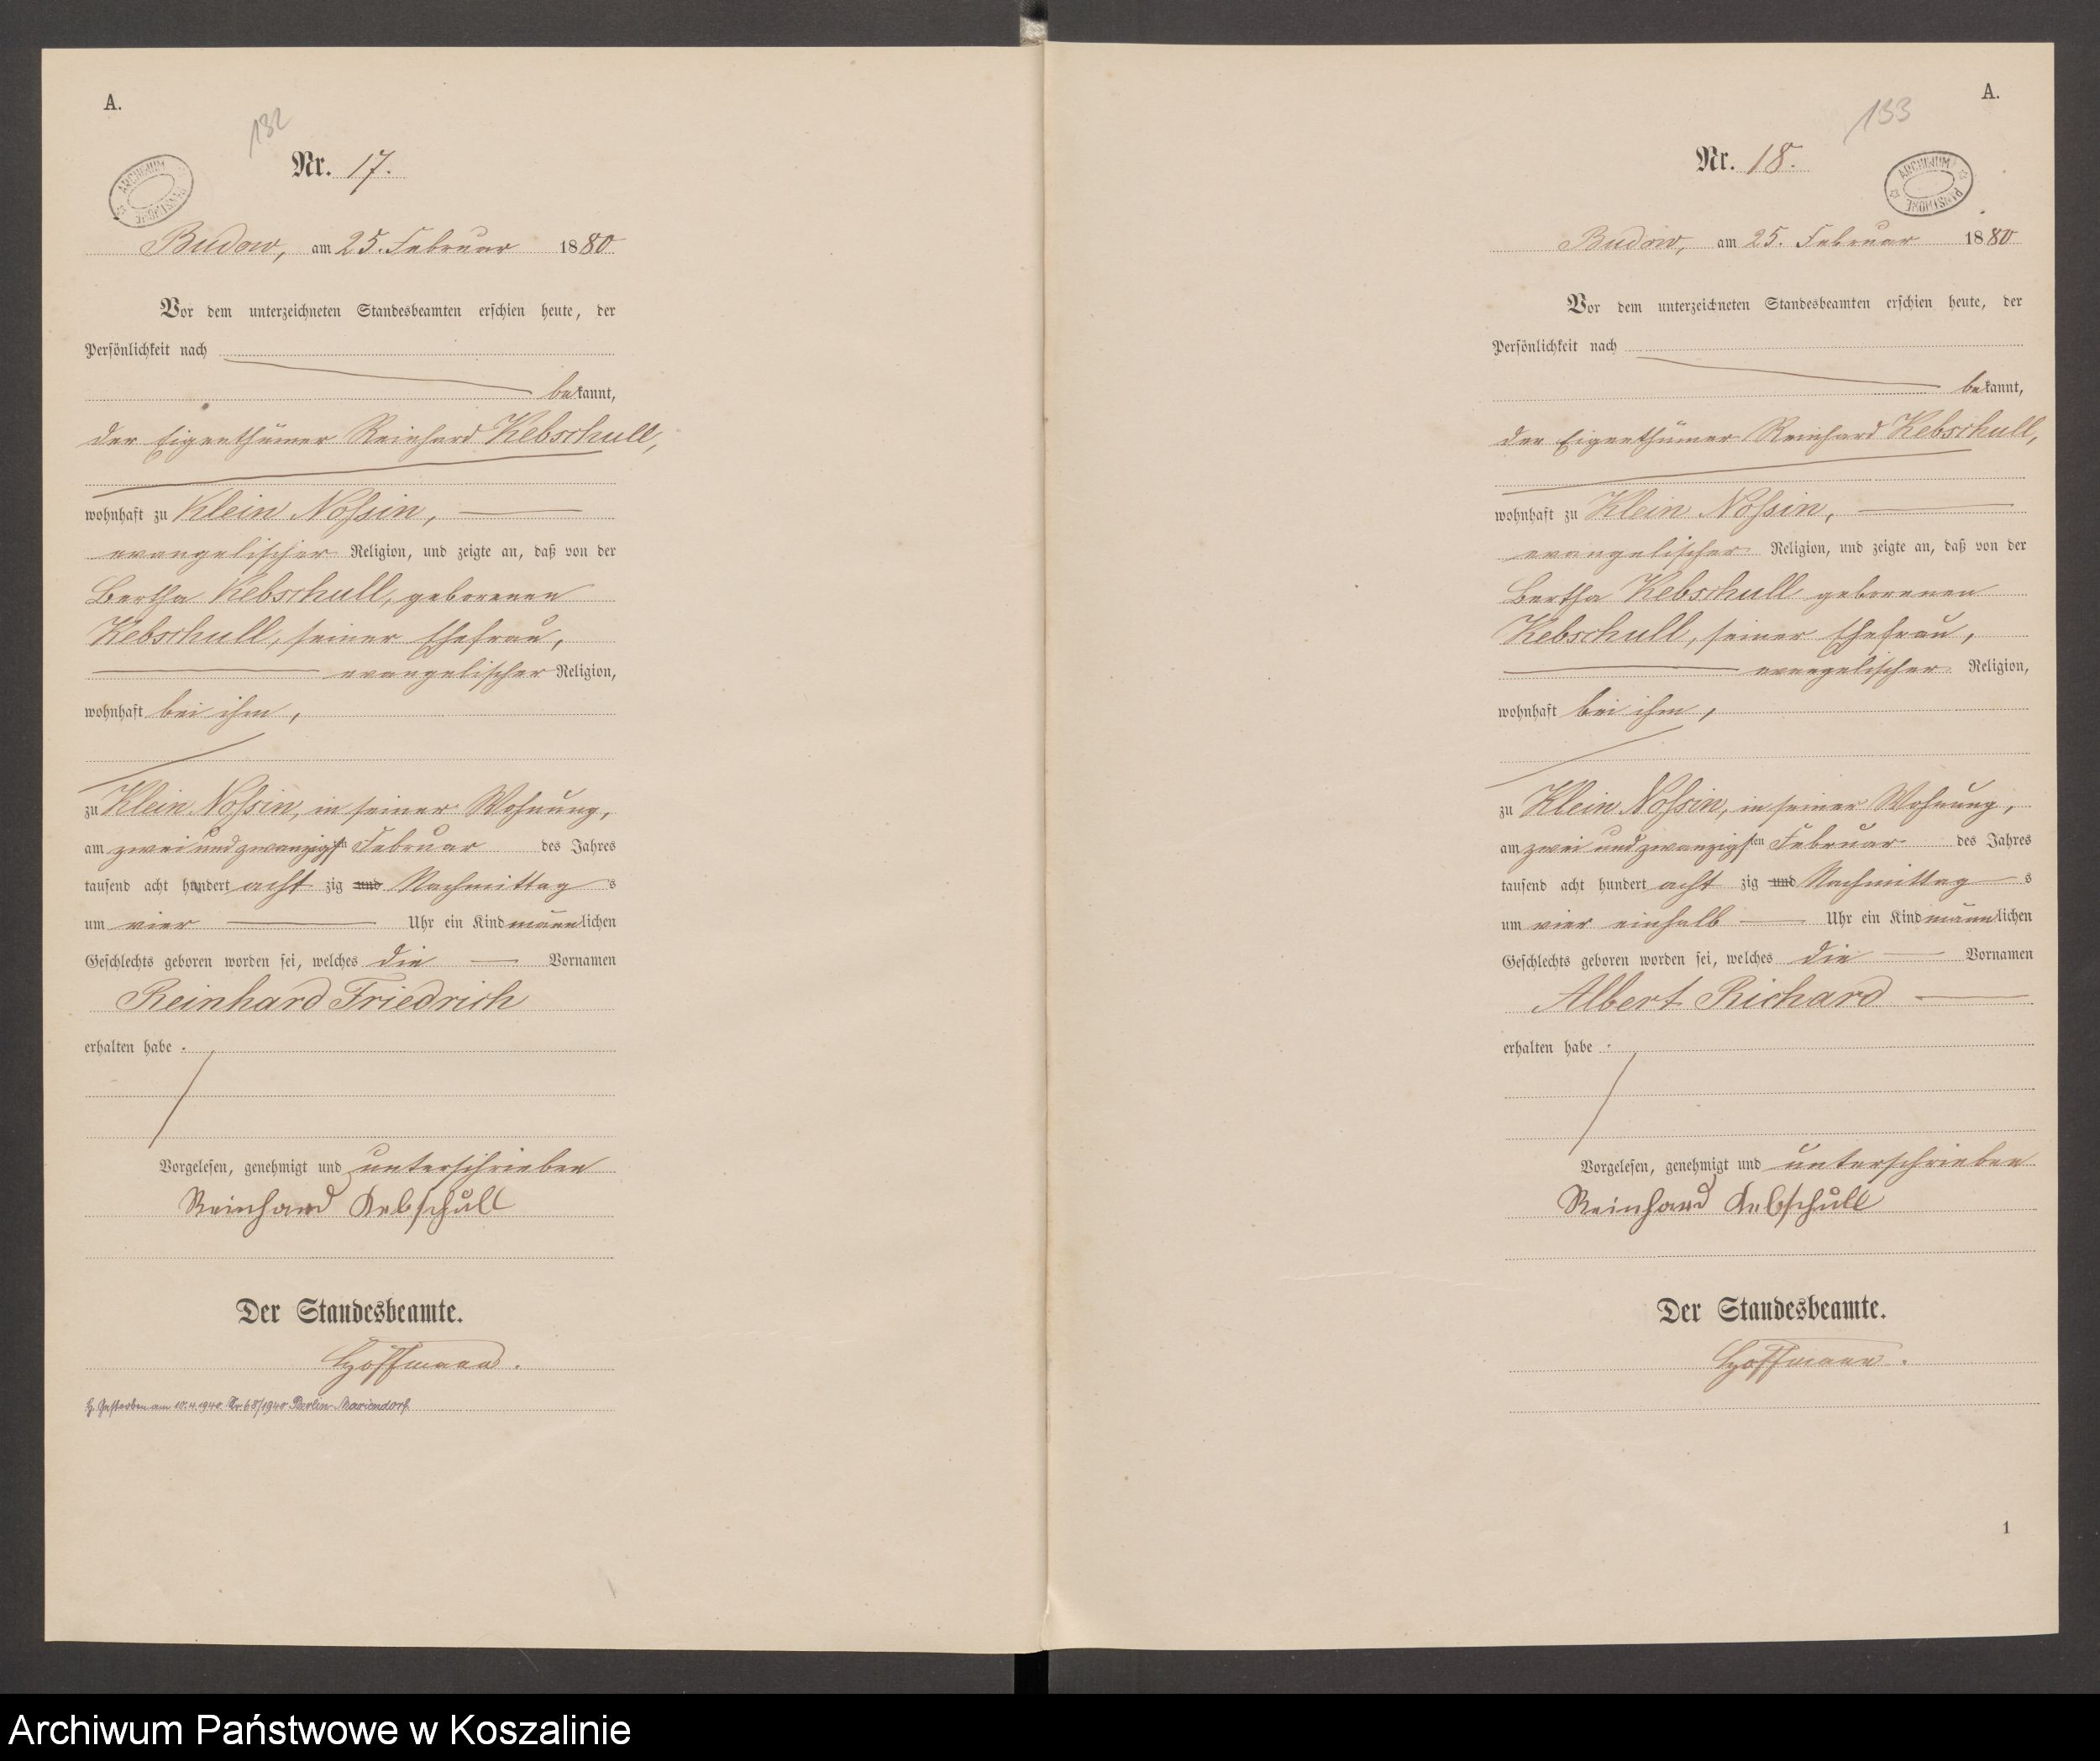 A.
132
Nr. 17.
ARCHIWUM PAŃSTWOWE
Budow, am 25. Februar 1880
Vor dem unterzeichneten Standesbeamten erschien heute, der
Persönlichkeit nach
bekannt,
der Eigenthümer Reinhard Kebschull,
wohnhaft zu Klein Nossin,
evangelischer Religion, und zeigte an, daß von der
Bertha Kebschull, geborenen
Kebschull, seiner Ehefrau,
evangelischer Religion,
wohnhaft bei ihm,
zu Klein Nossin, in seiner Wohnung,
am zwei und zwanzigsten Februar des Jahres
tausend acht hundert acht zig und Nachmittag s
um vier Uhr ein Kind männlichen
Geschlechts geboren worden sei, welches die Vornamen
Reinhard Friedrich
erhalten habe.
Vorgelesen, genehmigt und unterschrieben
Reinhard Kebschull
Der Standesbeamte.
Hoffmann.
Gestorben am 10.4.1940 Nr. 68/1940 Berlin-Mariendorf
A.
133
Nr. 18.
ARCHIWUM PAŃSTWOWE
Budow, am 25. Februar 1880
Vor dem unterzeichneten Standesbeamten erschien heute, der
Persönlichkeit nach
bekannt,
der Eigenthümer Reinhard Kebschull,
wohnhaft zu Klein Nossin,
evangelischer Religion, und zeigte an, daß von der
Bertha Kebschull geborenen
Kebschull, seiner Ehefrau,
evangelischer Religion,
wohnhaft bei ihm,
zu Klein Nossin, in seiner Wohnung,
am zwei und zwanzigsten Februar des Jahres
tausend acht hundert acht zig und Nachmittag s
um vier einhalb Uhr ein Kind männlichen
Geschlechts geboren worden sei, welches die Vornamen
Albert Richard
erhalten habe.
Vorgelesen, genehmigt und unterschrieben
Reinhard Kebschull
Der Standesbeamte.
Hoffmann.
1
Archiwum Państwowe w Koszalinie